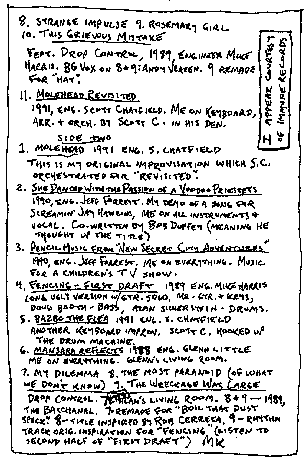 8. STRANGE IMPULSE 9. ROSEMARY GIRL
10. THIS GRIEVOUS MISTAKE
FEAT. DROP CONTROL, 1989, ENGINEER MIKE
HARRIS. BG VOX ON 8+9: ANDY 9 REMADE
FOR "HAT".
11. MOLEHEAD REVISITED
1991, ENG. SCOTT CHATFIELD. ME ON KEYBOARD,
ARR. + ORCH. BY SCOTT C. IN HIS DEN.
SIDE TWO
1. MOLEHEAD 1991 ENG. S. CHATFIELD
THIS IS MY ORIGINAL IMPROVISATION WHICH S.C.
ORCHESTRATED FOR "REVISITED".
2. SHE DANCED WITH THE PASSION OF A VOODOO PRINCESS
1990, ENG. JEFF FORREST. MY DEMO OF A SONG FOR
SCREAMIN' JAY HAWKINS, ME ON ALL INSTRUMENTS +
VOCAL. CO-WRITTEN BY BOB DUFFEY (MEANING HE
THOUGHT UP THE TITLE)
3. PENCIL MUSIC FROM "NEW SECRET CITY ADVENTURES"
1990, ENG. JEFF FORREST. ME ON EVERYTHING. MUSIC
FOR A CHILDREN'S TV SHOW.
4. FENCING - FIRST DRAFT 1989 ENG. MIKE HARRIS
LONG UGLY VERSION W/GTR. SOLO, MK - GTR. + KEYS,
DOUG BOOTH - BASS, ALAN SILVERSTEIN - DRUMS.
5. THE FLEA 1991 ENG. S. CHATFIELD
ANOTHER KEYBOARD IMPROV, SCOTT C. HOOKED UP
THE DRUM MACHINE.
6. REFLECTS 1988 ENG. GLENN LITTLE
ME ON EVERYTHING. GLENN'S LIVING ROOM.
7. MY DILEMMA 8. THE MOST PARANOID (OF WHAT
WE DON'T KNOW) 9. THE WRECKAGE WAS LARGE
DROP CONTROL. LIVING ROOM. 8+9 - 1989,
THE BACCHANAL. 7 - REMADE FOR "BOIL THAT DUST
SPECK." 8 - TITLE INSPIRED BY ROB 9 - RHYTHM
TRACK ORIG. INSPIRATION FOR "FENCING" (LISTEN TO
SECOND HALF OF "FIRST DRAFT") MK
I APPEAR COURTESY
OF IMMUNE RECORDS